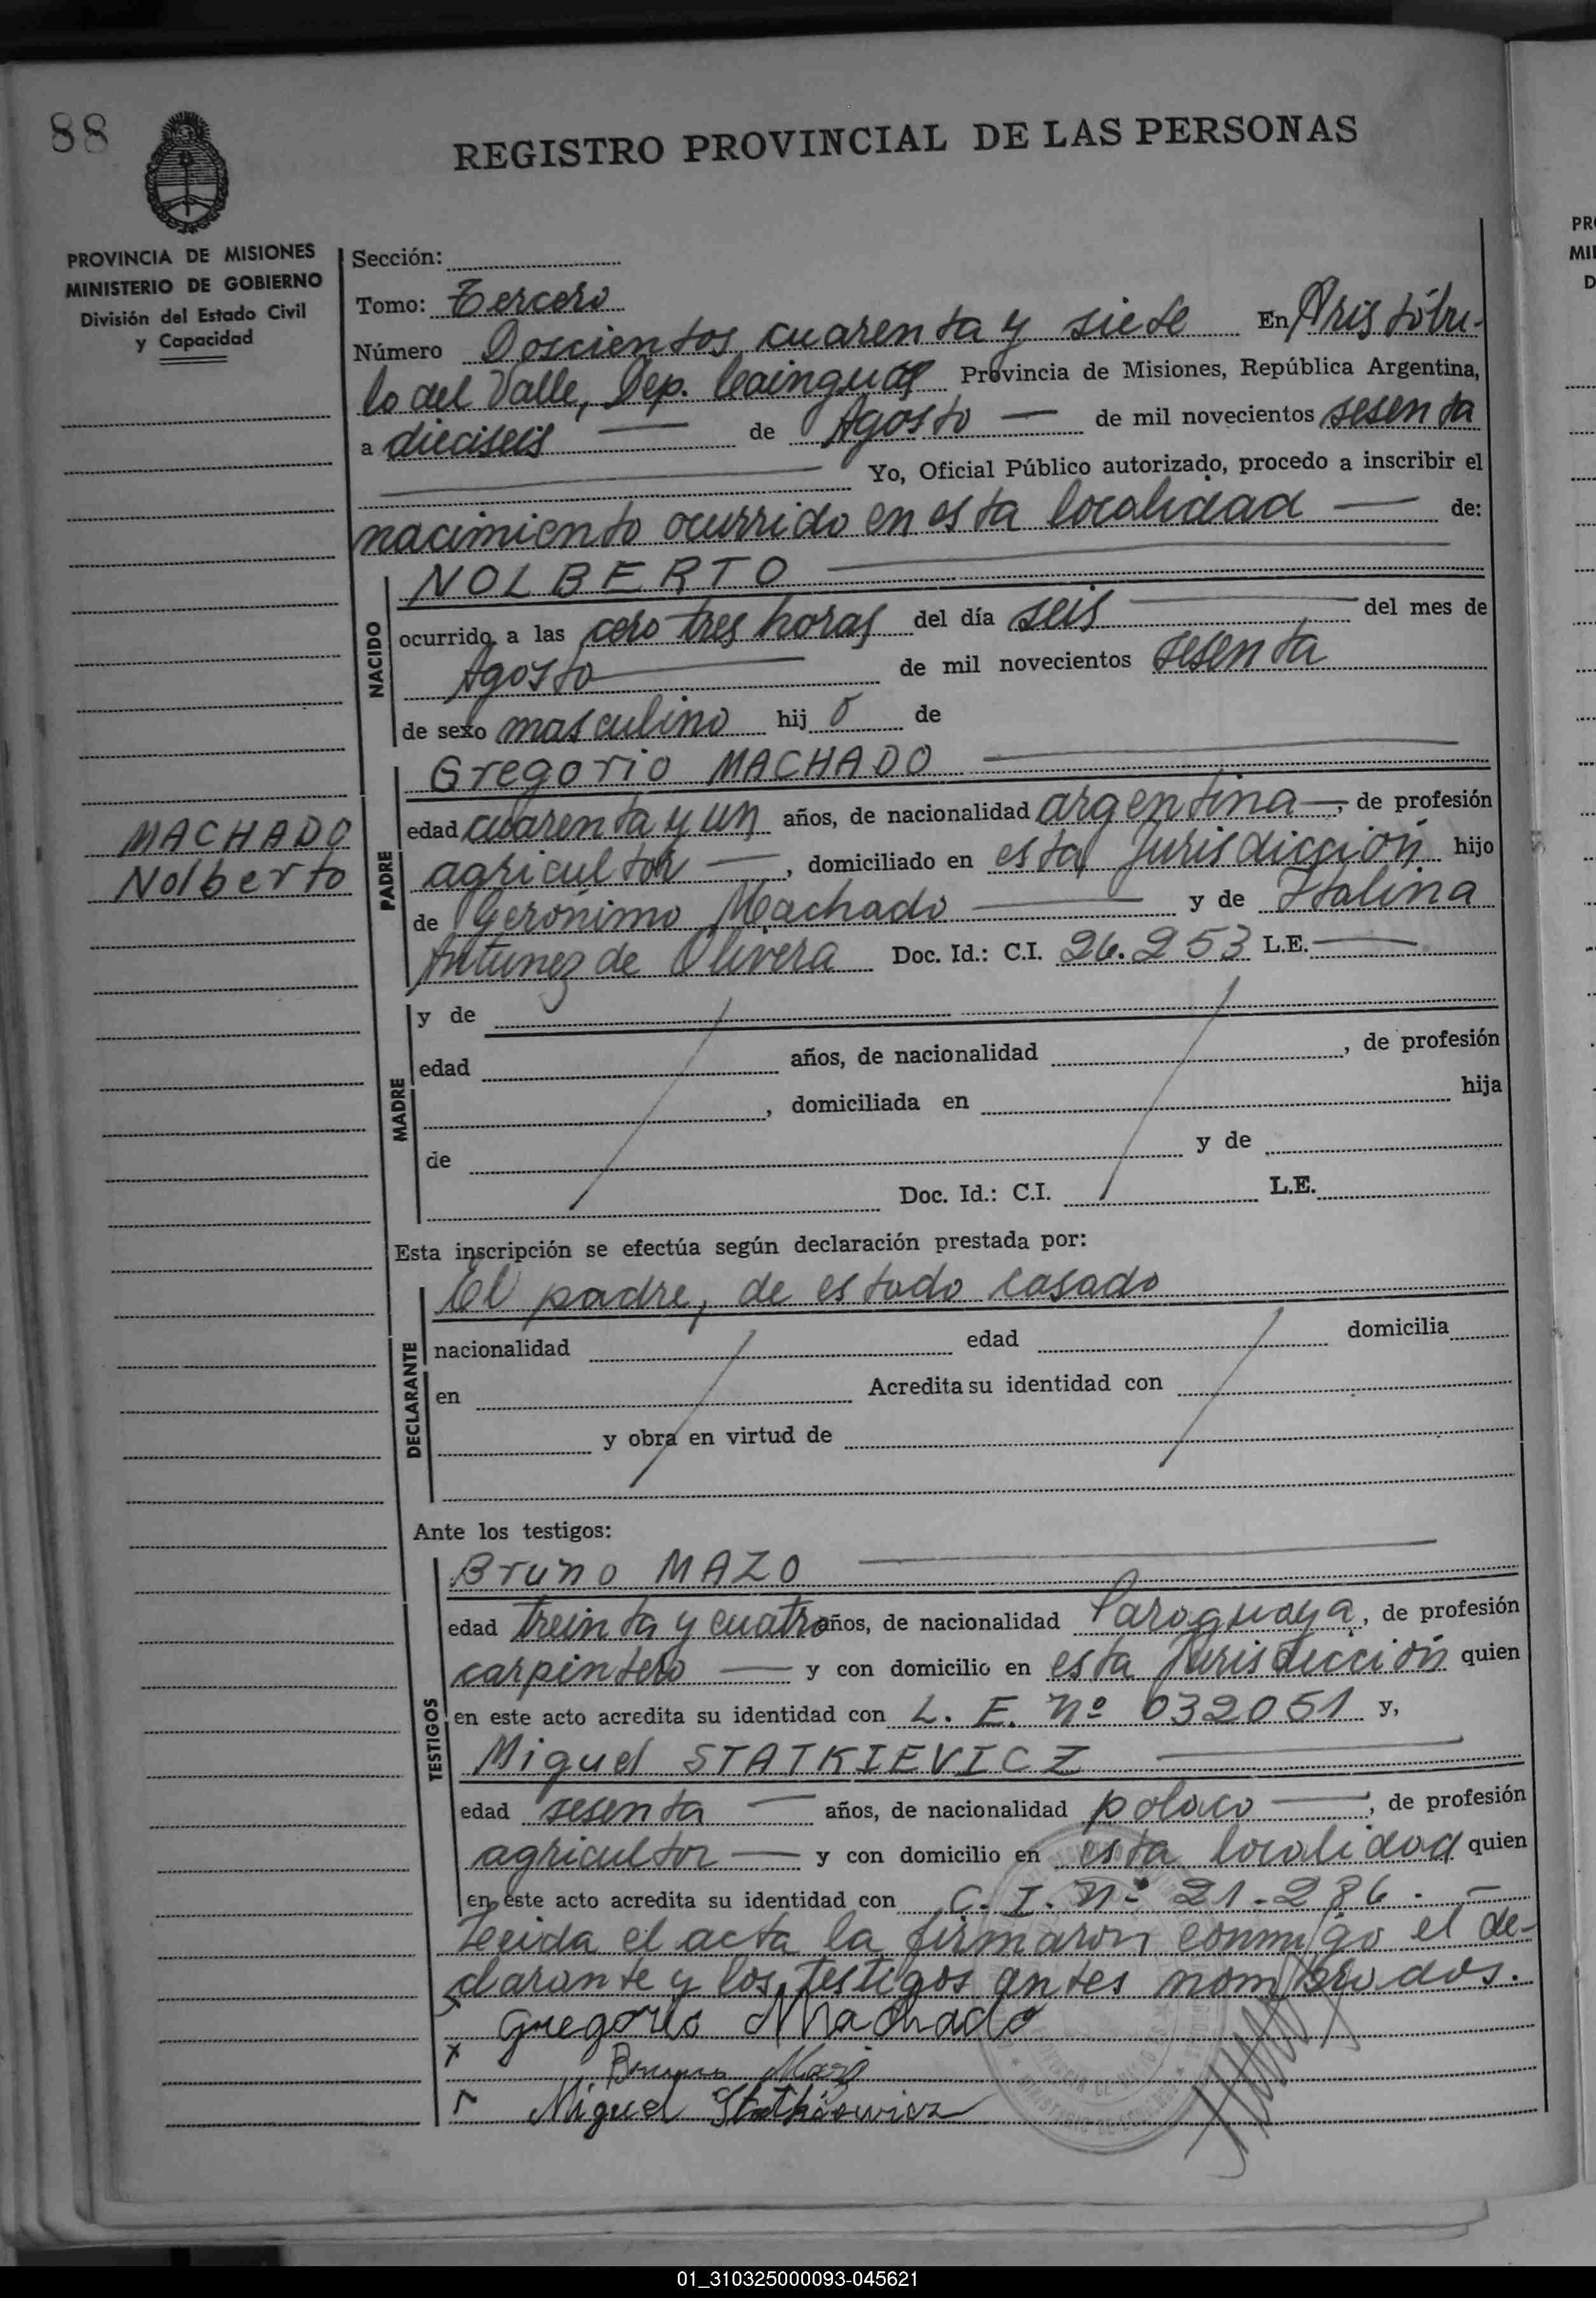 88
REGISTRO PROVINCIAL DE LAS PERSONAS
PROVINCIA DE MISIONES
MINISTERIO DE GOBIERNO
División del Estado Civil
y Capacidad
Sección:
Tomo: Tercero
Número Doscientos cuarenta y siete En Aristóbu-
lo del Valle, Dep. Cainguás Provincia de Misiones, República Argentina,
a dieciseis — de Agosto — de mil novecientos sesenta
Yo, Oficial Público autorizado, procedo a inscribir el
nacimiento ocurrido en esta localidad — de:
NACIDO
NOLBERTO
ocurrido a las cero tres horas del día seis — del mes de
Agosto — de mil novecientos sesenta
de sexo masculino hij o de
MACHADO
Nolberto
PADRE
Gregorio MACHADO
edad cuarenta y un años, de nacionalidad argentina —, de profesión
agricultor —, domiciliado en esta Jurisdicción hijo
de Gerónimo Machado — y de Italina
Antunez de Olivera Doc. Id.: C.I. 26.253 L.E. —
MADRE
y de
edad años, de nacionalidad , de profesión
, domiciliada en hija
de y de
Doc. Id.: C.I. L.E.
Esta inscripción se efectúa según declaración prestada por:
DECLARANTE
El padre, de estado casado
nacionalidad edad domicilia
en Acredita su identidad con
y obra en virtud de
Ante los testigos:
TESTIGOS
Bruno MAZO
edad treinta y cuatro años, de nacionalidad Paraguaya, de profesión
carpintero — y con domicilio en esta Jurisdicción quien
en este acto acredita su identidad con L. E. Nº 032051 y,
Miguel STATKIEVICZ
edad sesenta — años, de nacionalidad polaco —, de profesión
agricultor — y con domicilio en esta localidad quien
en este acto acredita su identidad con C. I. Nº 21.286. —
Leida el acta la firmaron conmigo el de-
clarante y los testigos antes nombrados.
Gregorio Machado
x Bruno Mazo
Miguel Statkiewicz
01_310325000093-045621